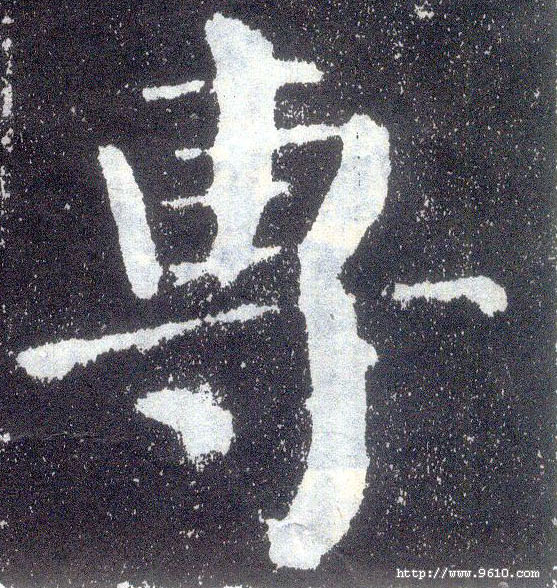 專
http://www.9610.com